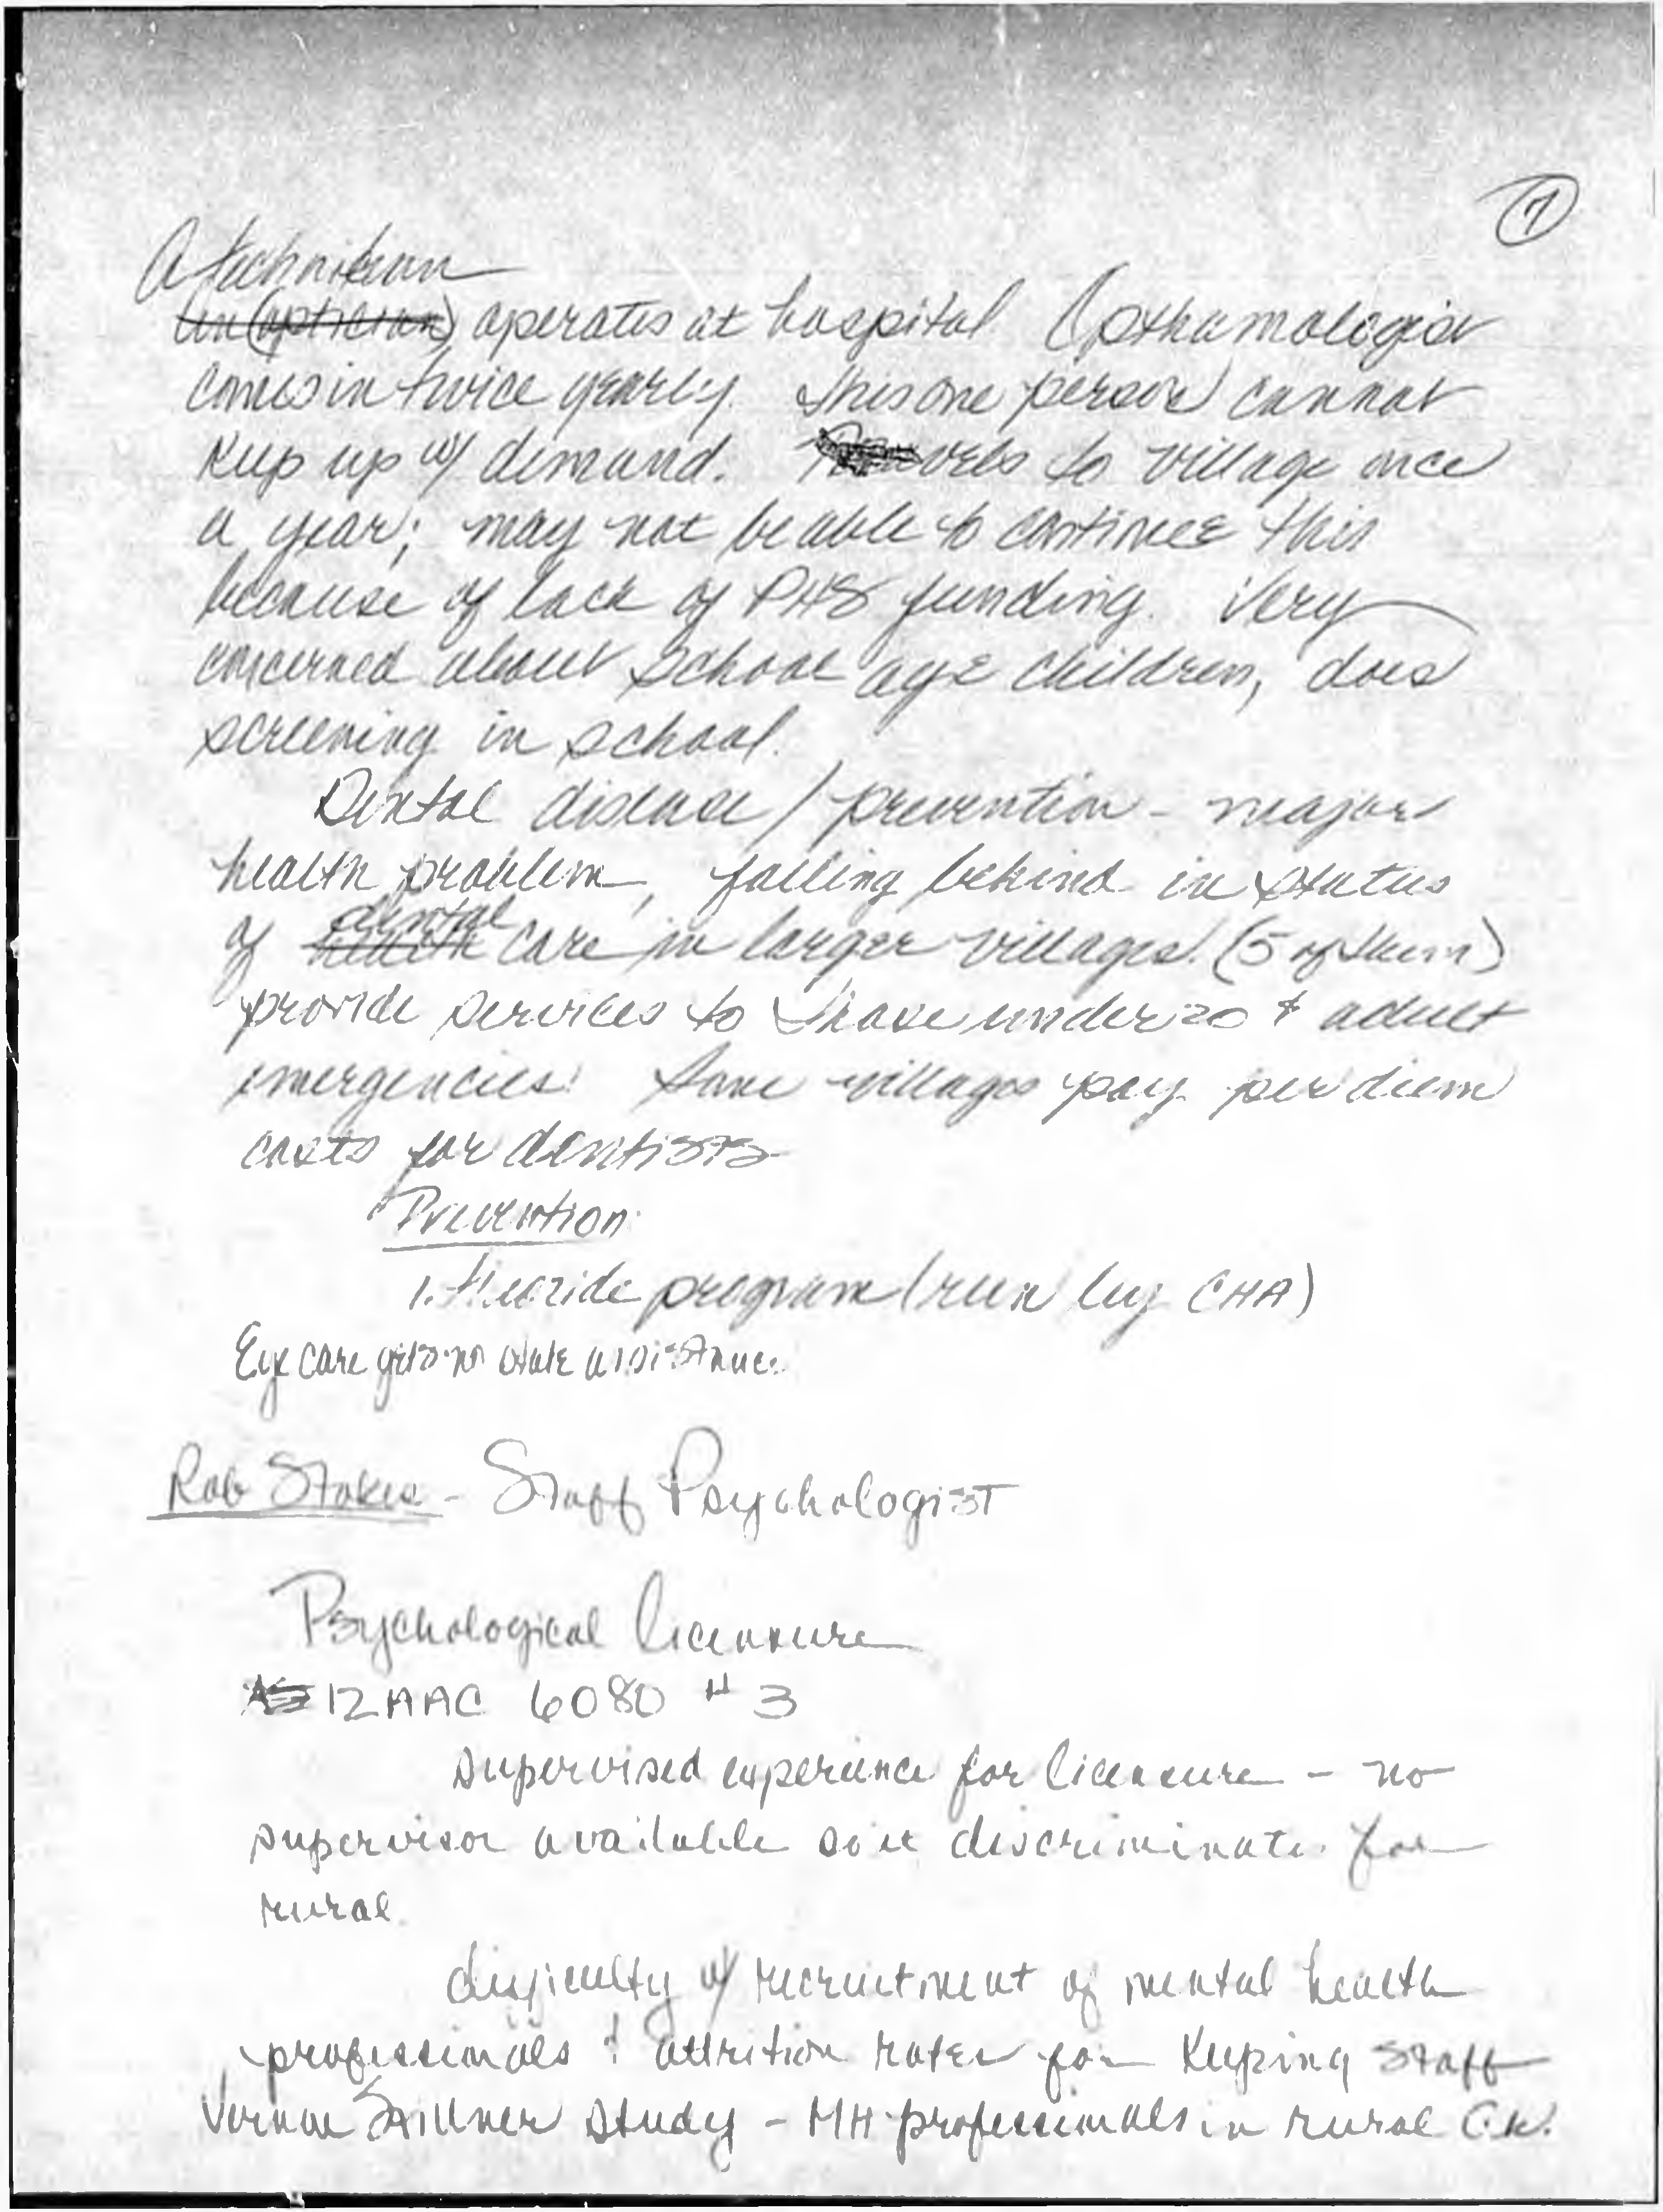 7
A technician
an (optician) operates at hospital Opthamologist
comes in twice yearly. This one person cannot
keep up w/ demand. to village once
a year; may not be able to continue this
because of lack of PHS funding. Very
concerned about school age children, does
screening in school.
Dental disease / prevention - major
health problem, falling behind in status
dental
of health care in larger villages. (5 of them)
provide services to those under 20 & adult
emergencies. Some villages pay per diem
costs for dentists
Prevention:
1. Fluoride program (run by CHA)
Eye care gets no state assistance.
Rob Stokes - Staff Psychologist
Psychological licensure
12 AAC 6080 # 3
supervised experience for licensure - no
supervisor available so it discriminates for
rural.
difficulty w/ recruitment of mental health
professionals & attrition rates for keeping staff
Stillner study - MH professionals in rural